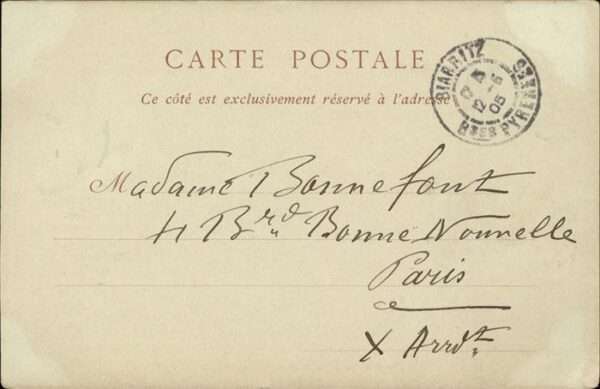 CARTE POSTALE
Ce côté est exclusivement réservé à l'adresse
BIARRITZ
12 - 5
05
Bses PYRENEES
Madame Bonnefont
4 Brd Bonne Nouvelle
Paris
X Arrdt